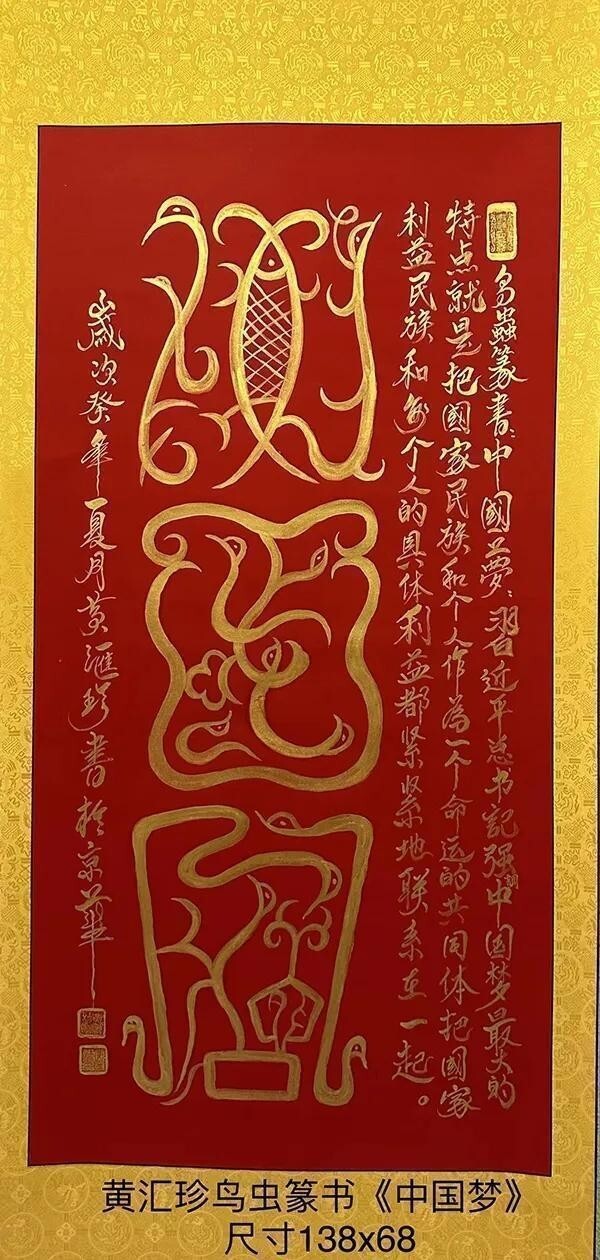 鸟蟲篆書:中國夢:習近平总书記强調中国梦最大的
特点就是把國家民族和个人作為一个命运的共同体把國家
利益民族和每个人的具体利益都紧紧地联系在一起。
歲次癸年夏月黄滙珍書於京華
黄汇珍鸟虫篆书《中国梦》
尺寸138x68